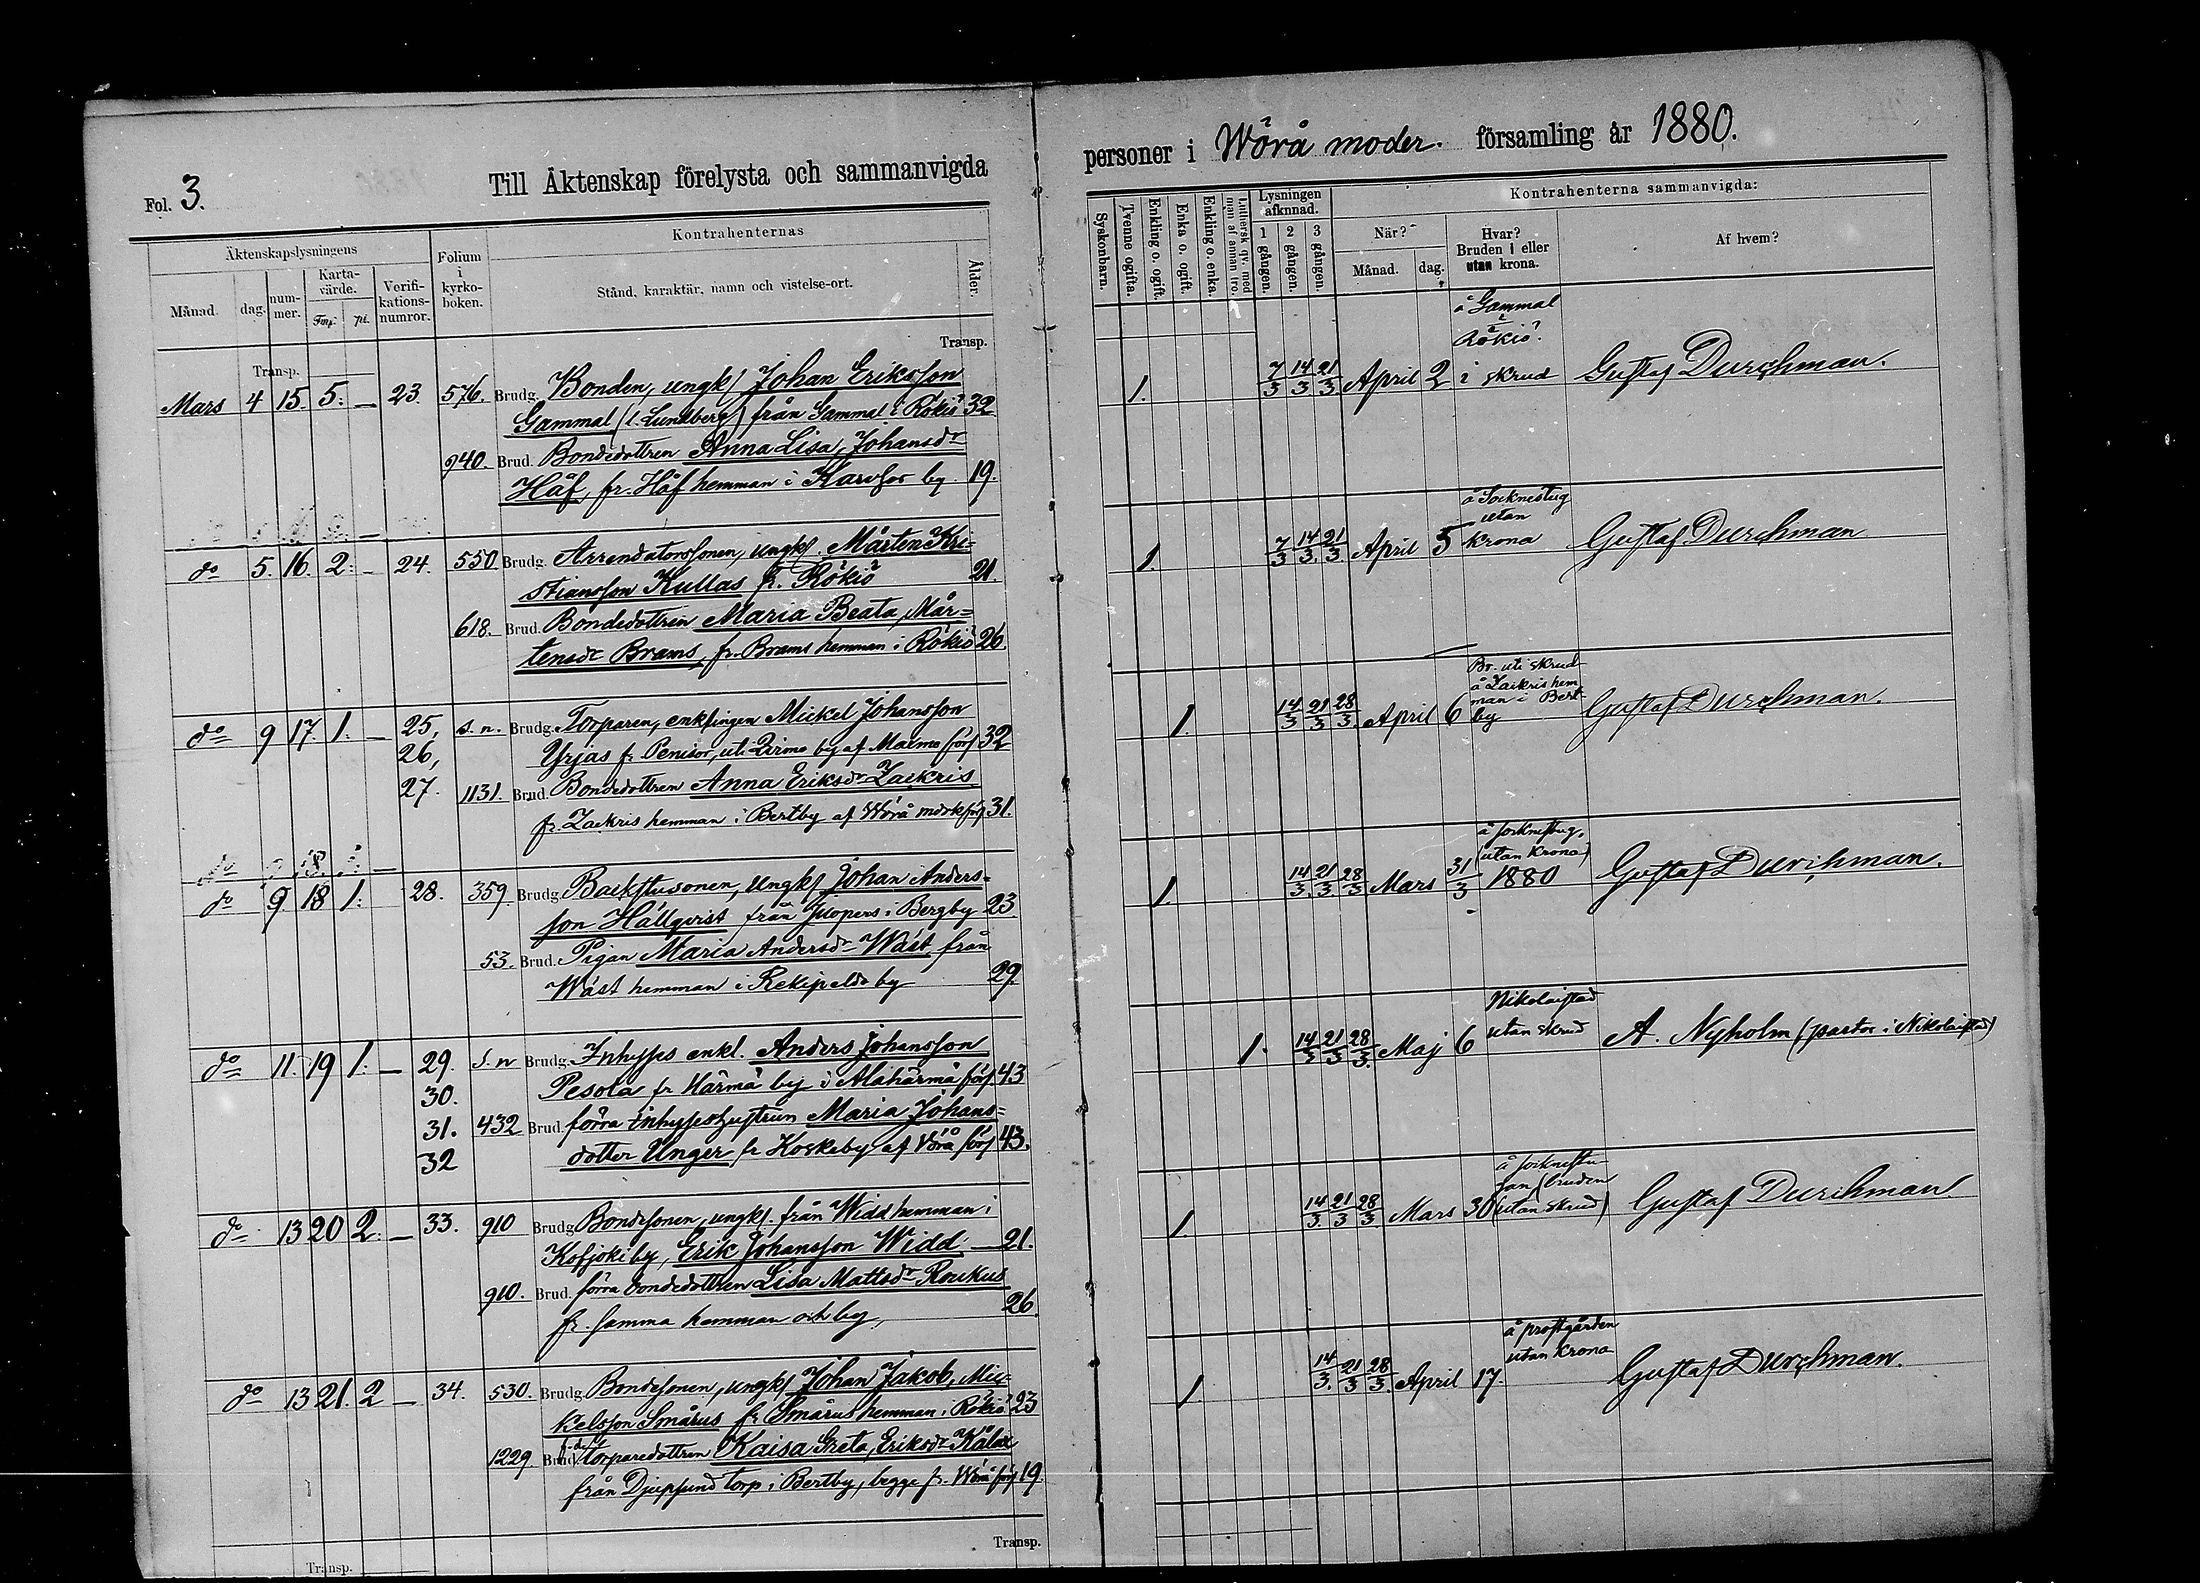 Fol. 3.
Till Äktenskap förelysta och sammanvigda
Äktenskapslysningens
Månad.
dag.
num-
mer.
Karta-
värde.
Fmp.
pi.
Verifi-
kations-
numror.
Folium
i
kyrko-
boken.
Kontrahenternas
Stånd, karaktär, namn och vistelse-ort.
Ålder.
Transp.
Transp.
Mars 4 15. 5. — 23. 576. Brudg. Bonden, ungk/ Johan Eriksson
Gammal (l. Lundberg) från Gammal i Rökiö 32
940. Brud. Bondedottren Anna Lisa Johansdr
Håf, fr. Håf hemman i Karfsor by. 19.
do 5. 16. 2. — 24. 550 Brudg. Arrendatorssonen, ungk/. Mårten Kri-
stiansson Kullas fr. Rökiö 21.
618. Brud. Bondedottren Maria Beata Mår=
tensdr Brams, fr. Brams hemman i Rökiö 26.
do 9 17. 1. — 25, s. n. Brudg. Torparen, enklingen Mickel Johansson
26, Yrjas fr Penisor, uti Qvimo by af Maxmo förs 32
27. 1131. Brud. Bondedottren Anna Eriksdr Zackris
fr. Zackris hemman i Bertby af Wörå mdrkförs 31.
do 9. 18 1. 28. 359. Brudg. Backstusonen, ungk/ Johan Anders-
son Hällqvist från Juopers i Bergby 23
53. Brud. Pigan Maria Andersdr Wäst från
Wäst hemman i Rekipeldo by 29.
do 11. 19 1. — 29. s. n Brudg. Inhyses enkl. Anders Johansson
30. Pesola fr Härmä by i Alahärmä förs 43
31. 432 Brud. förra Inhyseshustrun Maria Johans=
32 dotter Unger fr Koskeby af Vörå förs 43.
do 13 20 2. — 33. 910 Brudg. Bondesonen, ungk/. från Widd hemman i
Kofjoki by, Erik Johansson Widd — 21.
910. Brud. förra bondedottren Lisa Mattsdr Roukus
fr. samma hemman och by, 26.
do 13 21. 2 — 34. 530. Brudg. Bondesonen, ungk/ Johan Jakob, Mic-
kelsson Smärus fr Smärus hemman i Rökiö 23
1229. Brud. f. d. torparedottren Kaisa Greta Eriksdr Kålax
från Djupsund torp i Bertby, begge fr. Wörå förs 19.
Transp.
Transp.
personer i Wörå moder. församling år 1880.
Syskonbarn.
Tvenne ogifta.
Enkling o. ogift.
Enka o. ogift.
Enkling o. enka.
Luthersk qv. med
man af annan tro.
Lysningen
afkunnad.
1 gången.
2 gången.
3 gången.
Kontrahenterna sammanvigda:
När?
Månad.
dag.
Hvar?
Bruden i eller
utan krona.
Af hvem?
å Gammal
i
Rökiö.
1. 7/3 14/3 21/3. April 2 i skrud Gustaf Durchman.
å Socknestug
utan
1. 7/3 14/3. 21/3. April 5 krona Gustaf Durchman
Br. uti skrud
å Zackris hem
man i Bert
by
1. 14/3 21/3 28/3. April 6 Gustaf Durchman.
å socknestug.
(utan krona)
1. 14/3. 21/3. 28/3 Mars 31/3 1880 Gustaf Durchman.
Nikolaistad
1. 14/3 21/3. 28/3. Maj 6 utan skrud A. Nyholm (pastor i Nikolaistad)
å socknestu-
gan (bruden
1. 14/3. 21/3. 28/3. Mars 30 utan skrud) Gustaf Durchman.
å prostgården
utan krona
1. 14/3. 21/3 28/3. April 17. Gustaf Durchman.